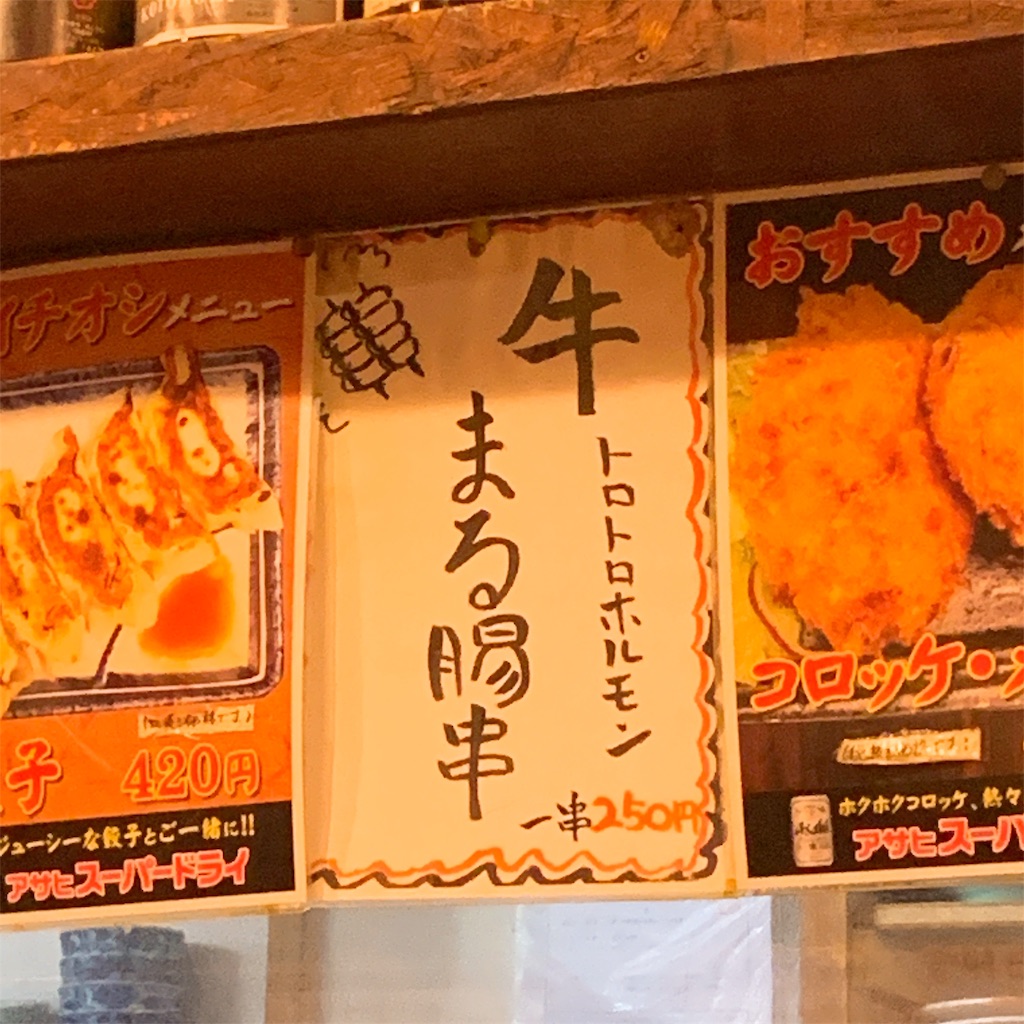 イチオシメニュー
子 420円
ジューシーな餃子とご一緒に!!
アサヒスーパードライ
牛
トロトロホルモン
まる腸串
一串250円
おすすめ
コロッケ・
ホクホクコロッケ、熱々
アサヒスーパ